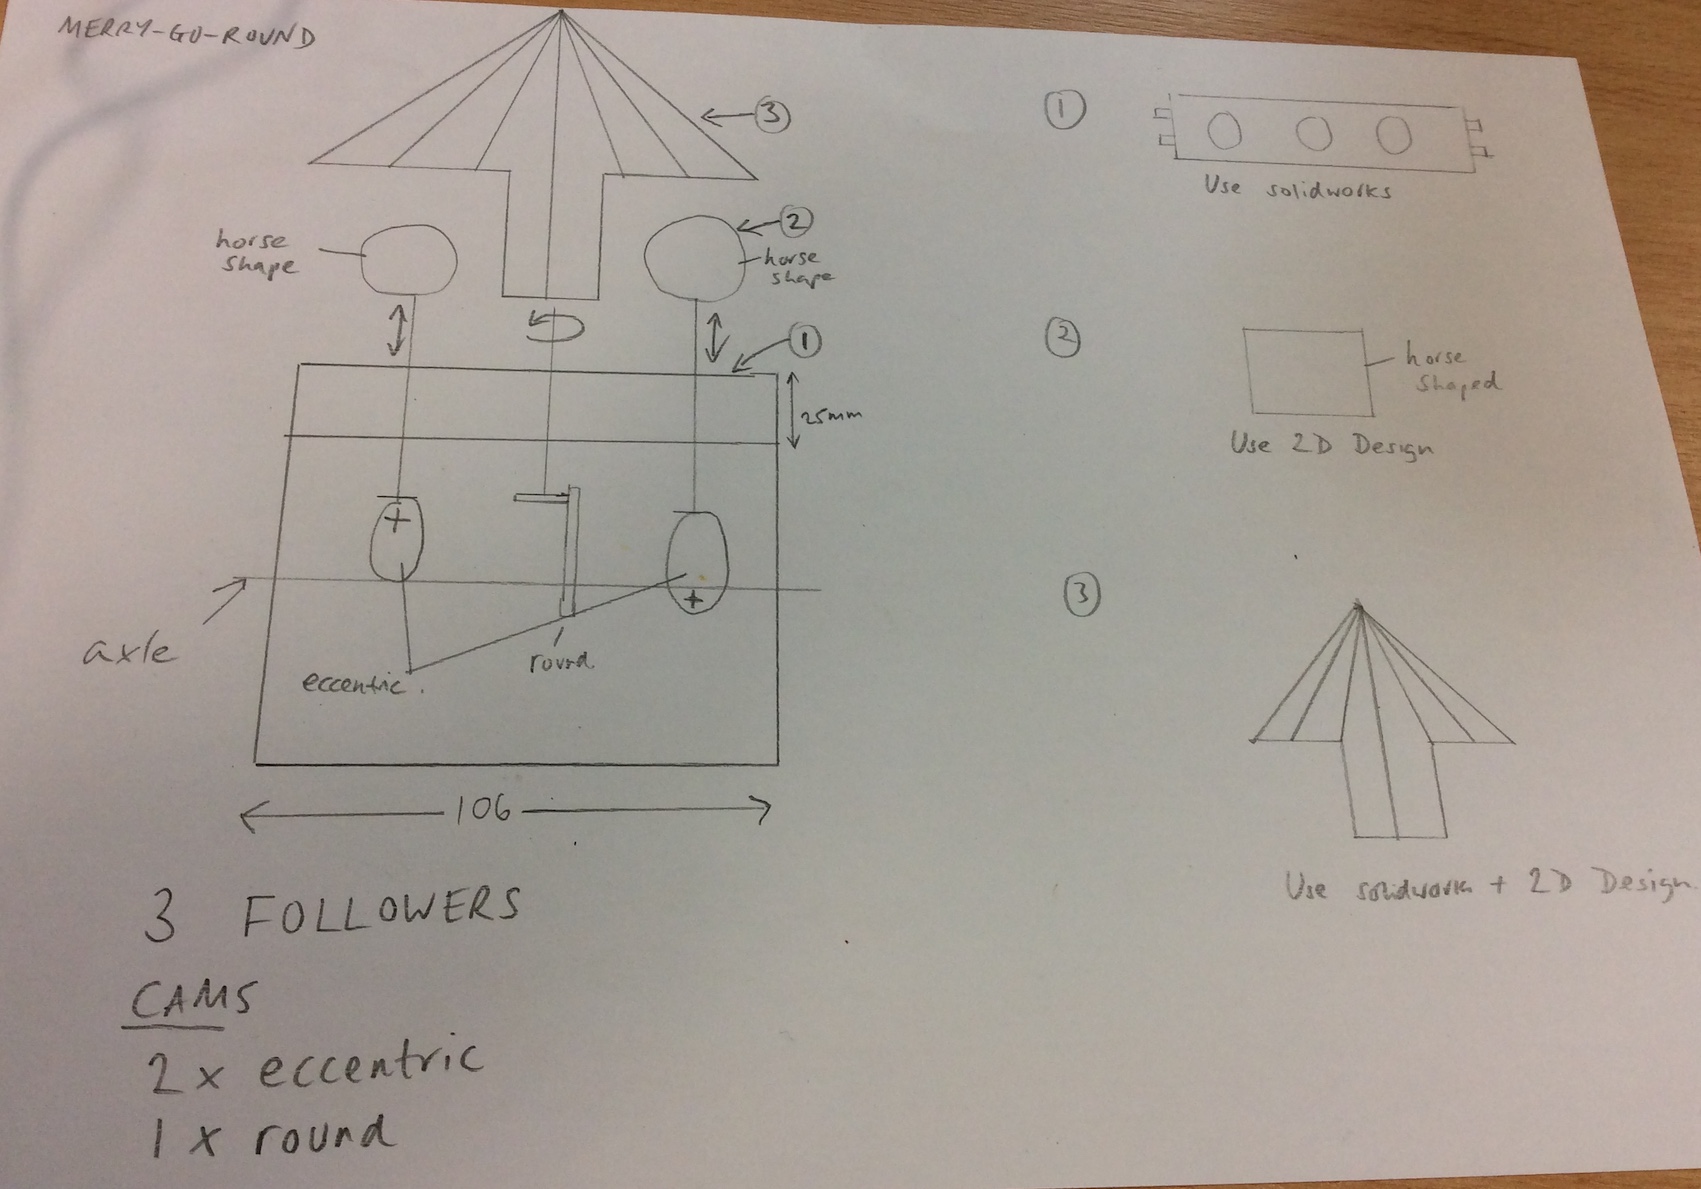 MERRY-GO-ROUND
3
horse
shape
2
horse
shape
1
25mm
axle
eccentric.
round.
106
3 FOLLOWERS
CAMS
2 x eccentric
1 x round
1
Use solidworks
2
horse
shaped
Use 2D Design
3
Use solidwork + 2D Design.